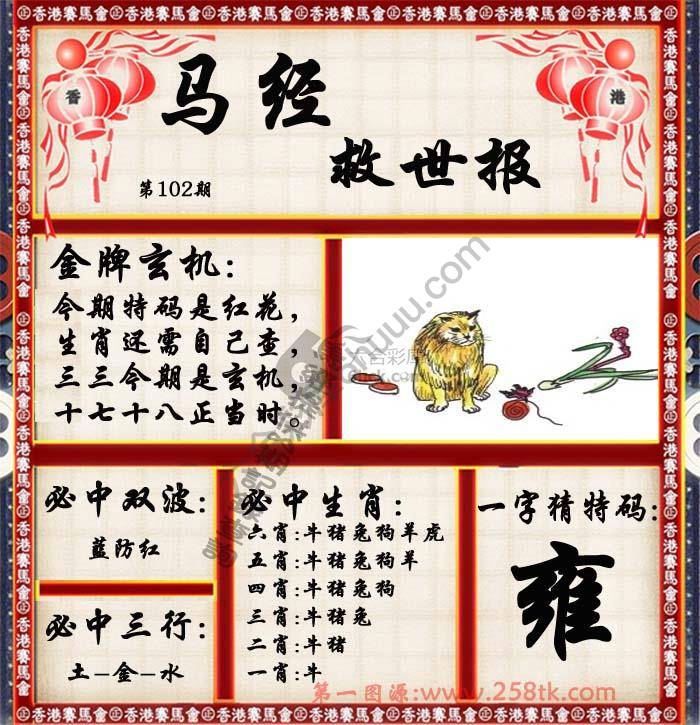 香港賽馬會
香
港
马经
救世报
第102期
金牌玄机：
今期特码是红花，
生肖还需自己查，
三三今期是玄机，
十七十八正当时。
必中双波：
蓝防红
必中三行：
土-金-水
必中生肖：
六肖:牛猪兔狗羊虎
五肖:牛猪兔狗羊
四肖:牛猪兔狗
三肖:牛猪兔
二肖:牛猪
一肖:牛
一字猜特码：
雍
第一图源:www.258tk.com